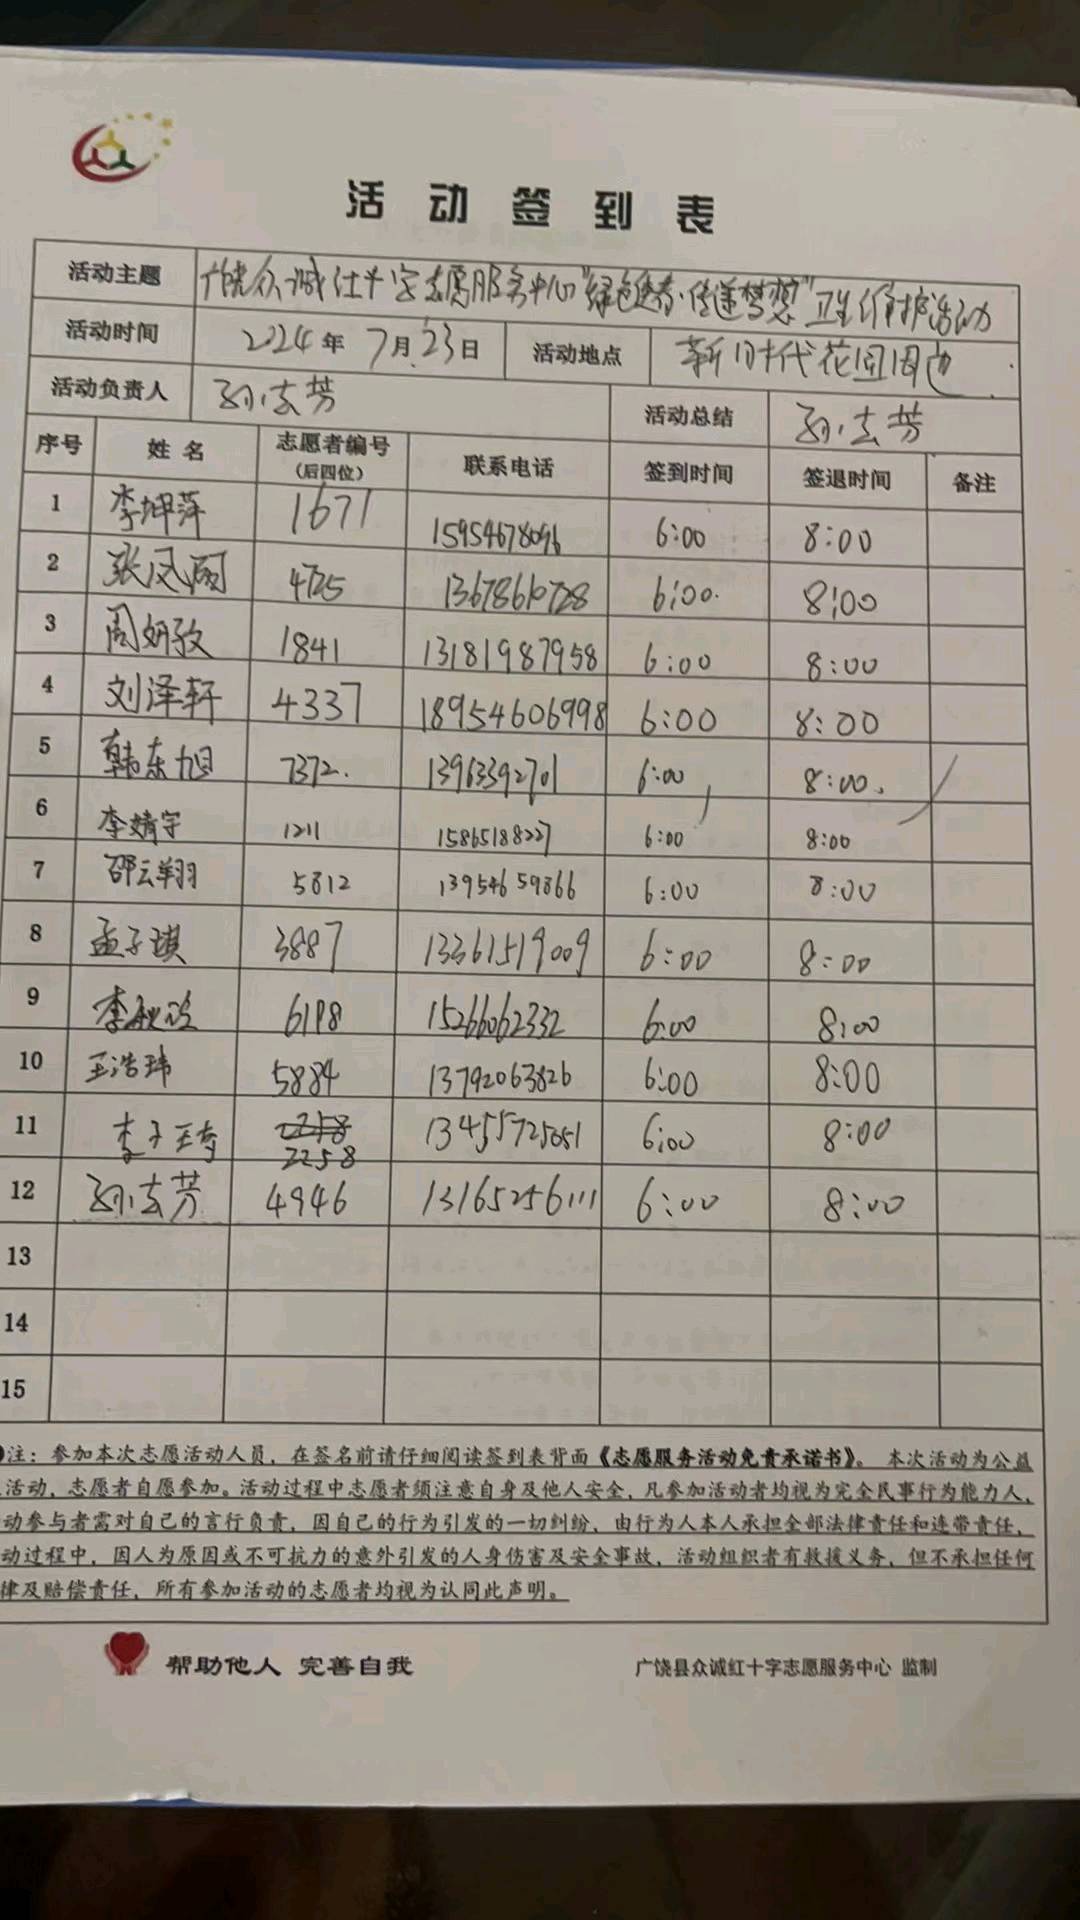 活动签到表
活动主题 广饶众诚红十字志愿服务中心"绿色青春·传递梦想"卫生维护活动
活动时间 2024年7月23日 活动地点 新时代花园周边
活动负责人 孙志芳 活动总结 孙志芳
序号 姓名 志愿者编号(后四位) 联系电话 签到时间 签退时间 备注
1 李坤萍 1671 15954678096 6:00 8:00
2 张凤丽 4725 13678610728 6:00 8:00
3 周妍孜 1841 13181987958 6:00 8:00
4 刘泽轩 4337 18954606998 6:00 8:00
5 韩东旭 7372 13963392701 6:00 8:00
6 李婧宇 1211 15865188227 6:00 8:00
7 邵云翔 5812 13954659866 6:00 8:00
8 孟子琪 3887 13361519009 6:00 8:00
9 李 6198 15266062332 6:00 8:00
10 王浩玮 5884 13792063826 6:00 8:00
11 李子琦 2258 2258 13455725651 6:00 8:00
12 孙志芳 4946 13165256111 6:00 8:00
13
14
15
注：参加本次志愿活动人员，在签名前请仔细阅读签到表背面《志愿服务活动免责承诺书》。本次活动为公益
活动，志愿者自愿参加。活动过程中志愿者须注意自身及他人安全，凡参加活动者均视为完全民事行为能力人，
动参与者需对自己的言行负责，因自己的行为引发的一切纠纷，由行为人本人承担全部法律责任和连带责任，
动过程中，因人为原因或不可抗力的意外引发的人身伤害及安全事故，活动组织者有救援义务，但不承担任何
律及赔偿责任，所有参加活动的志愿者均视为认同此声明。
帮助他人 完善自我 广饶县众诚红十字志愿服务中心 监制